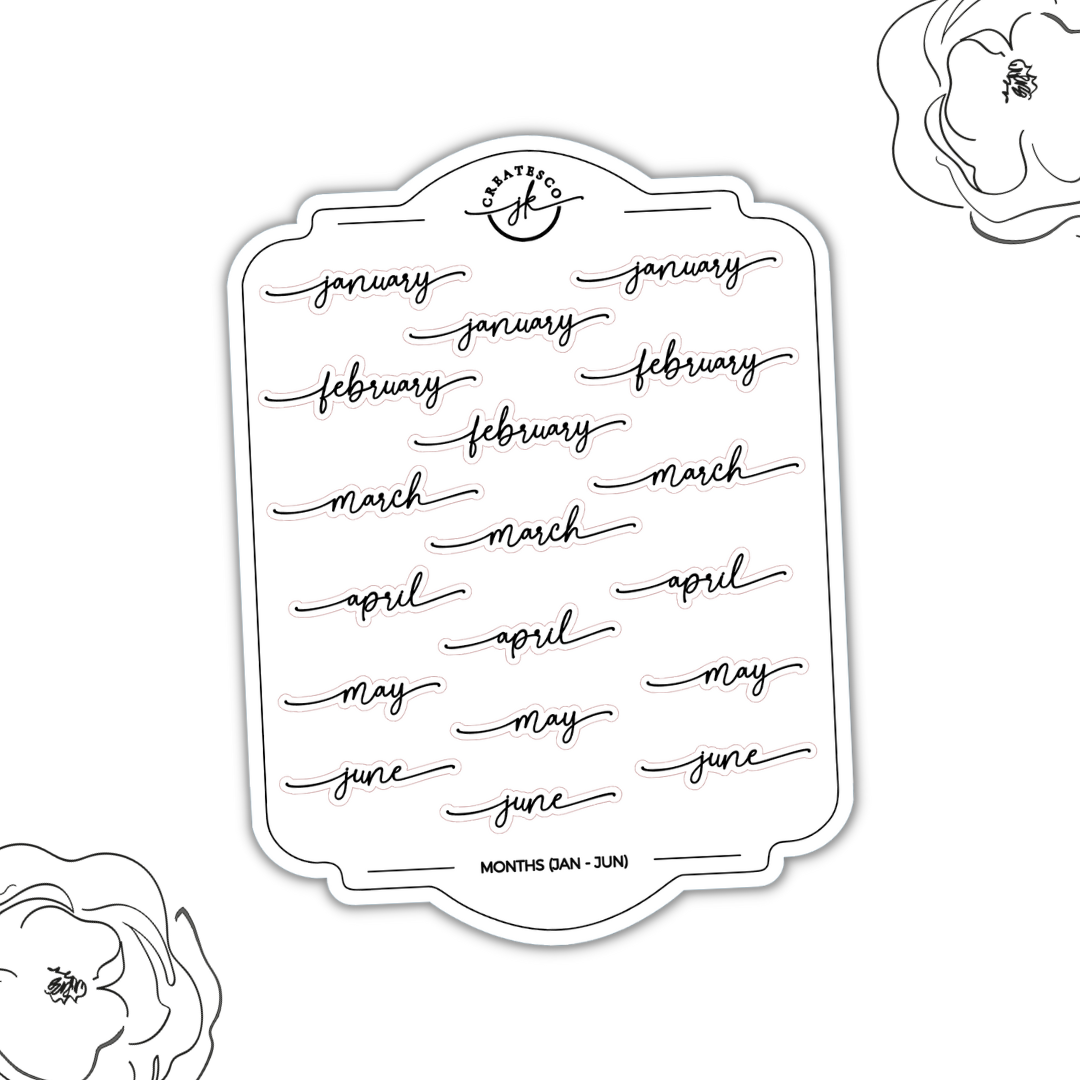 CREATESCO
jk
january january
january
february february
february
march march
march
april april
april
may may
may
june june
june
MONTHS (JAN - JUN)